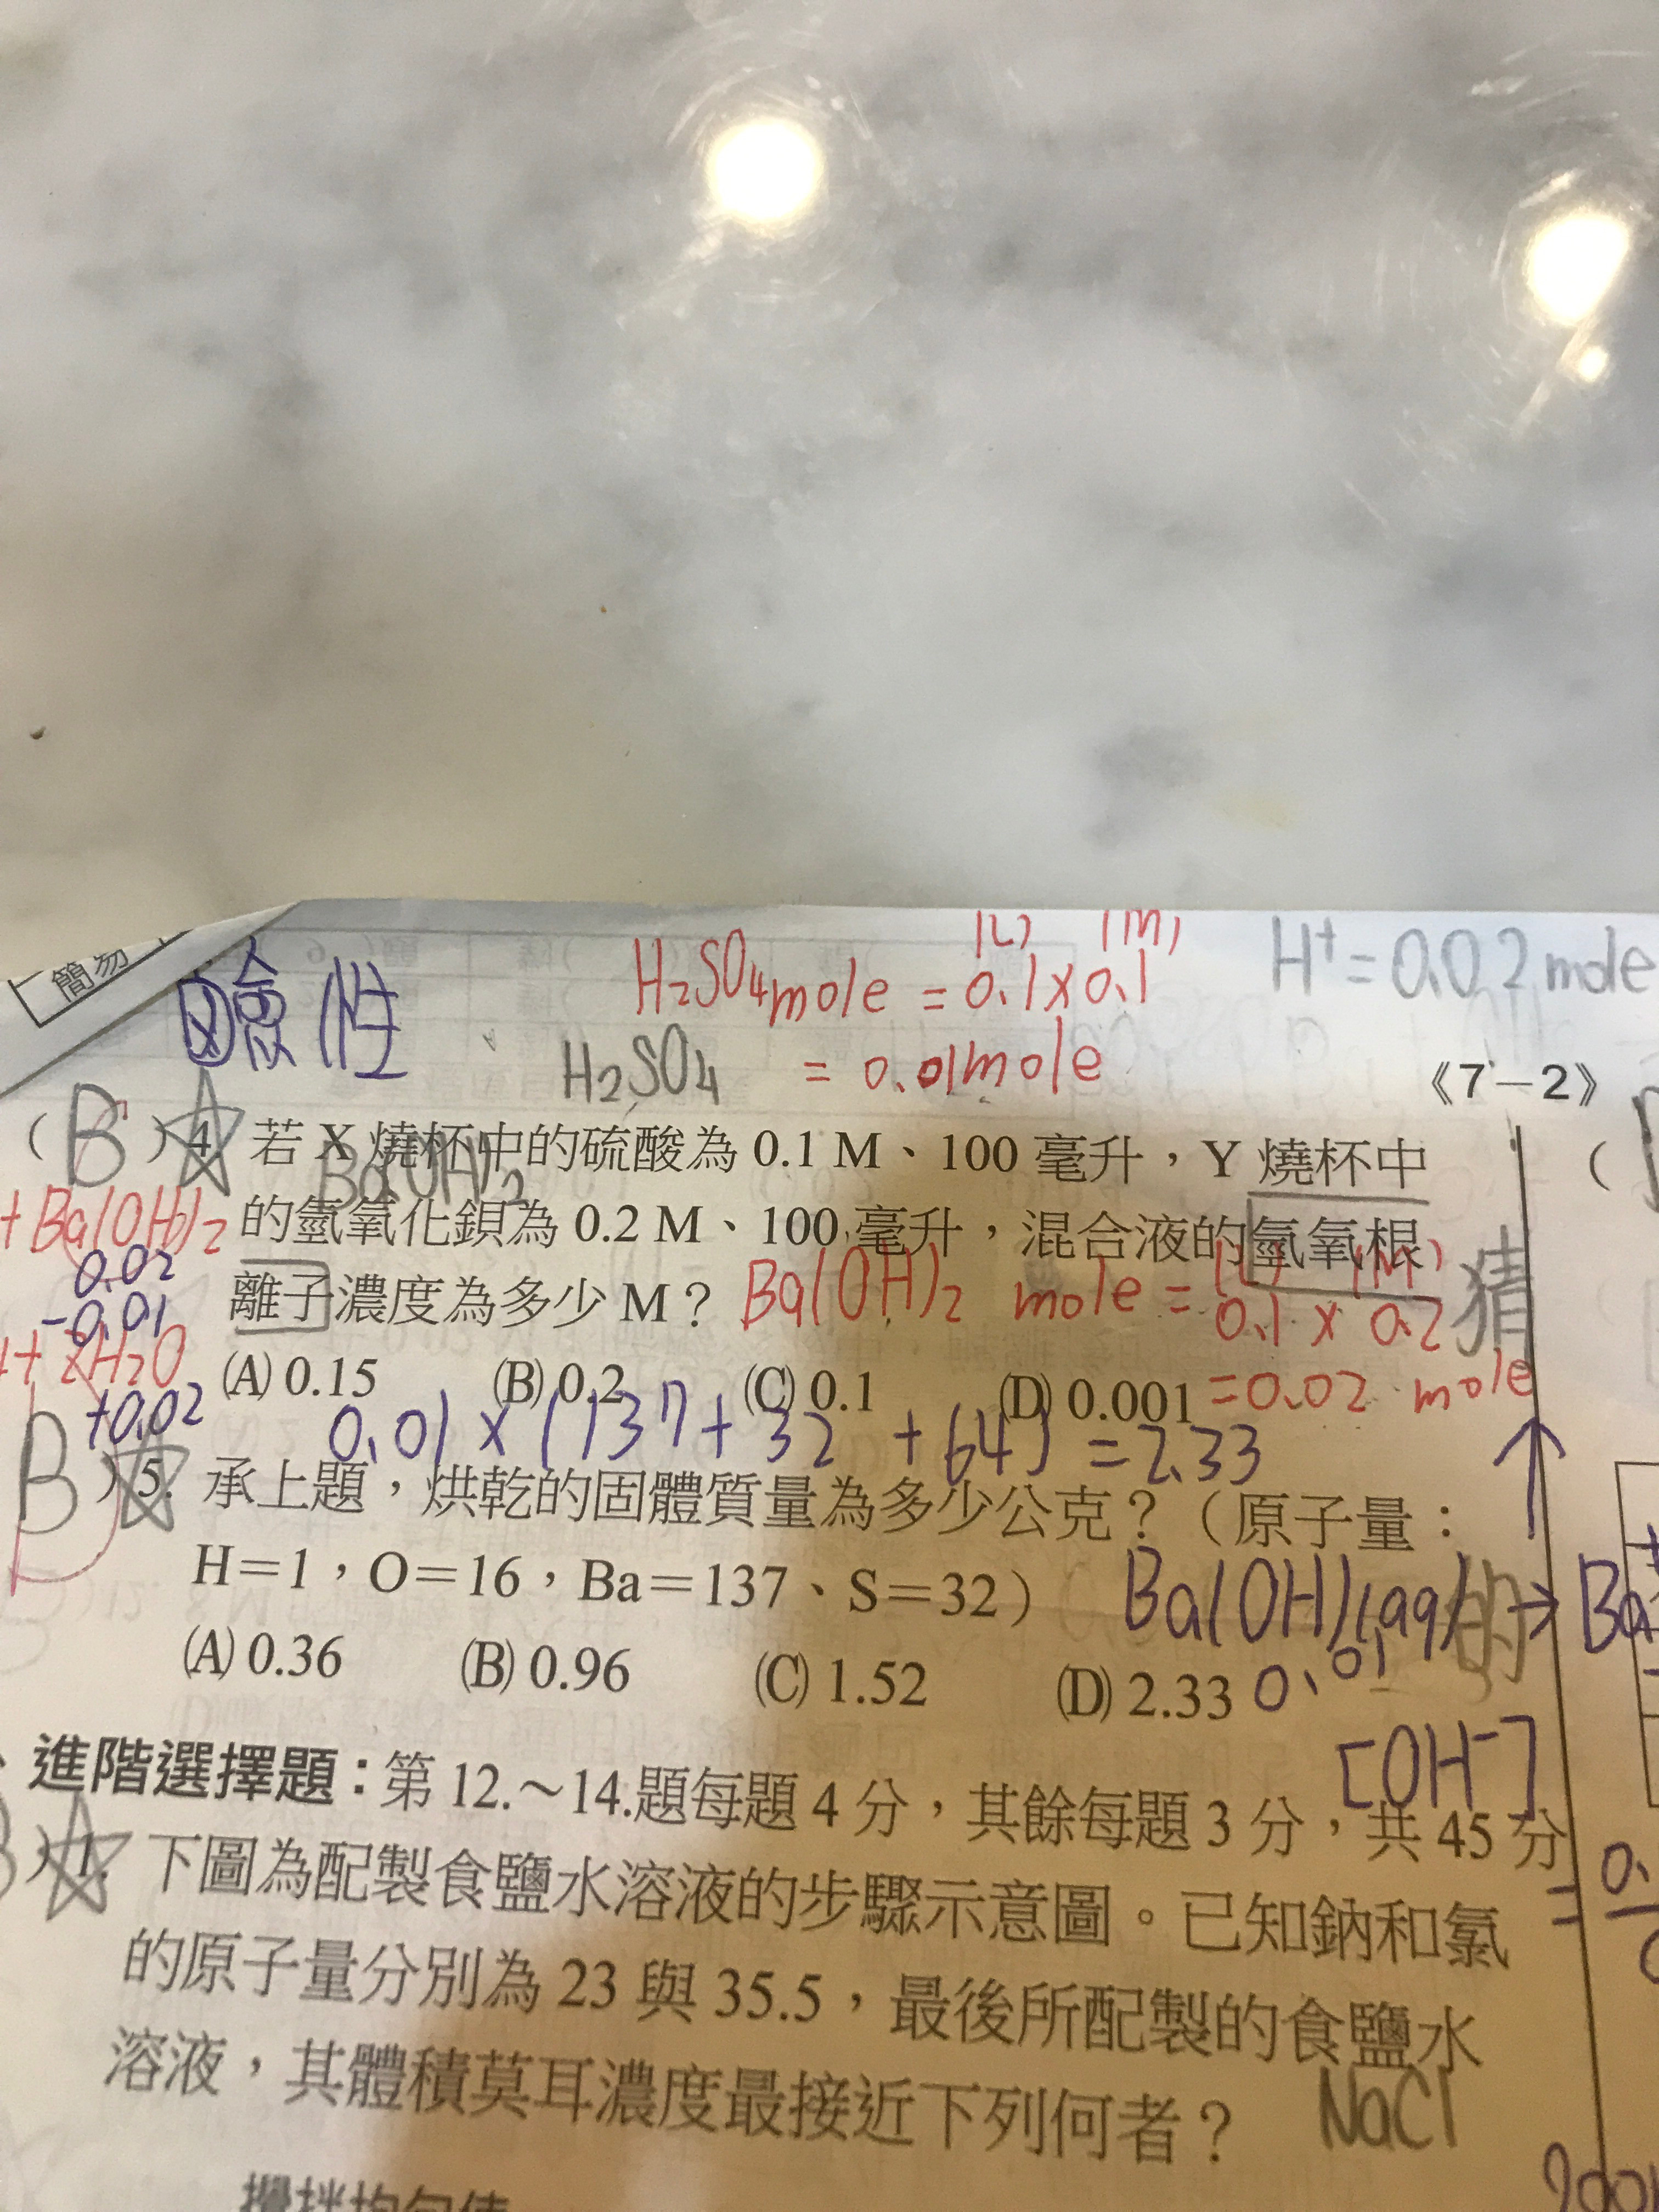 簡易
鹼性
H₂SO₄ mole = 0.1 × 0.1
(L) (M)
H⁺ = 0.02 mole
H₂SO₄
= 0.01 mole
《7－2》
( B ) 4. 若 X 燒杯中的硫酸為 0.1 M、100 毫升，Y 燒杯中
Ba(OH)₂
+ Ba(OH)₂
的氫氧化鋇為 0.2 M、100 毫升，混合液的氫氧根
0.02
-0.01
離子濃度為多少 M？
Ba(OH)₂ mole = 0.1 × 0.2
(L) (M)
猜
+ 2H₂O
+0.02
(A) 0.15 (B) 0.2 (C) 0.1 (D) 0.001
= 0.02 mole
0.01 × (137 + 32 + 64) = 2.33
B ) 5. 承上題，烘乾的固體質量為多少公克？（原子量：
H＝1，O＝16，Ba＝137、S＝32）
Ba(OH)(aq) → Ba
的
0.01
(A) 0.36 (B) 0.96 (C) 1.52 (D) 2.33
[OH⁻]
進階選擇題：第 12.～14.題每題 4 分，其餘每題 3 分，共 45 分
) 1. 下圖為配製食鹽水溶液的步驟示意圖。已知鈉和氯
的原子量分別為 23 與 35.5，最後所配製的食鹽水
溶液，其體積莫耳濃度最接近下列何者？
NaCl